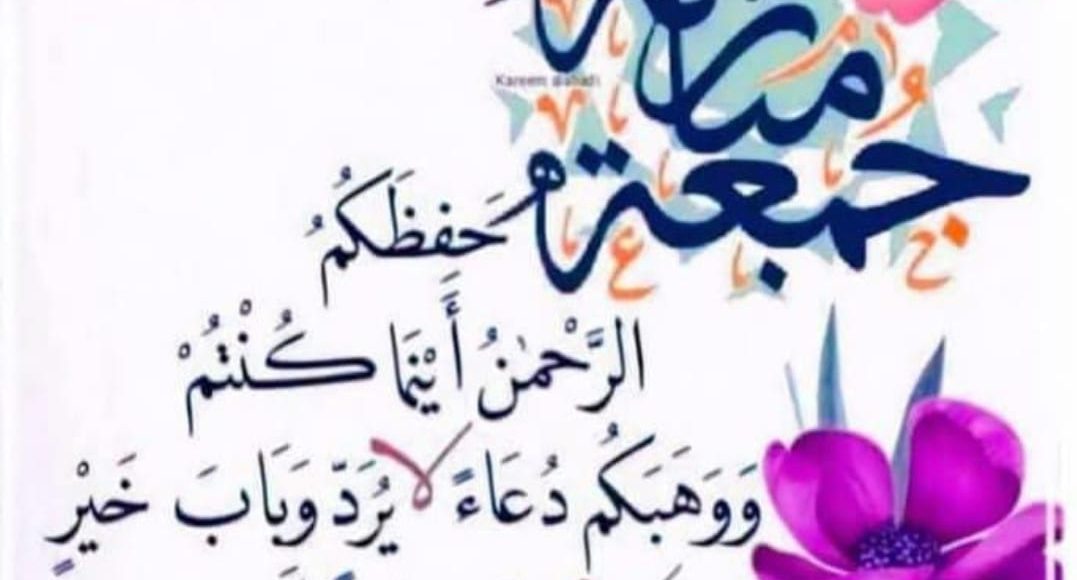 جمعة مباركة
Kareem
حَفِظَكُمُ
الرَّحْمٰنُ أَيْنَمَا كُنْتُمْ
وَوَهَبَكُم دُعَاءً لا يُرَدّ وَبَابَ خَيْرٍ